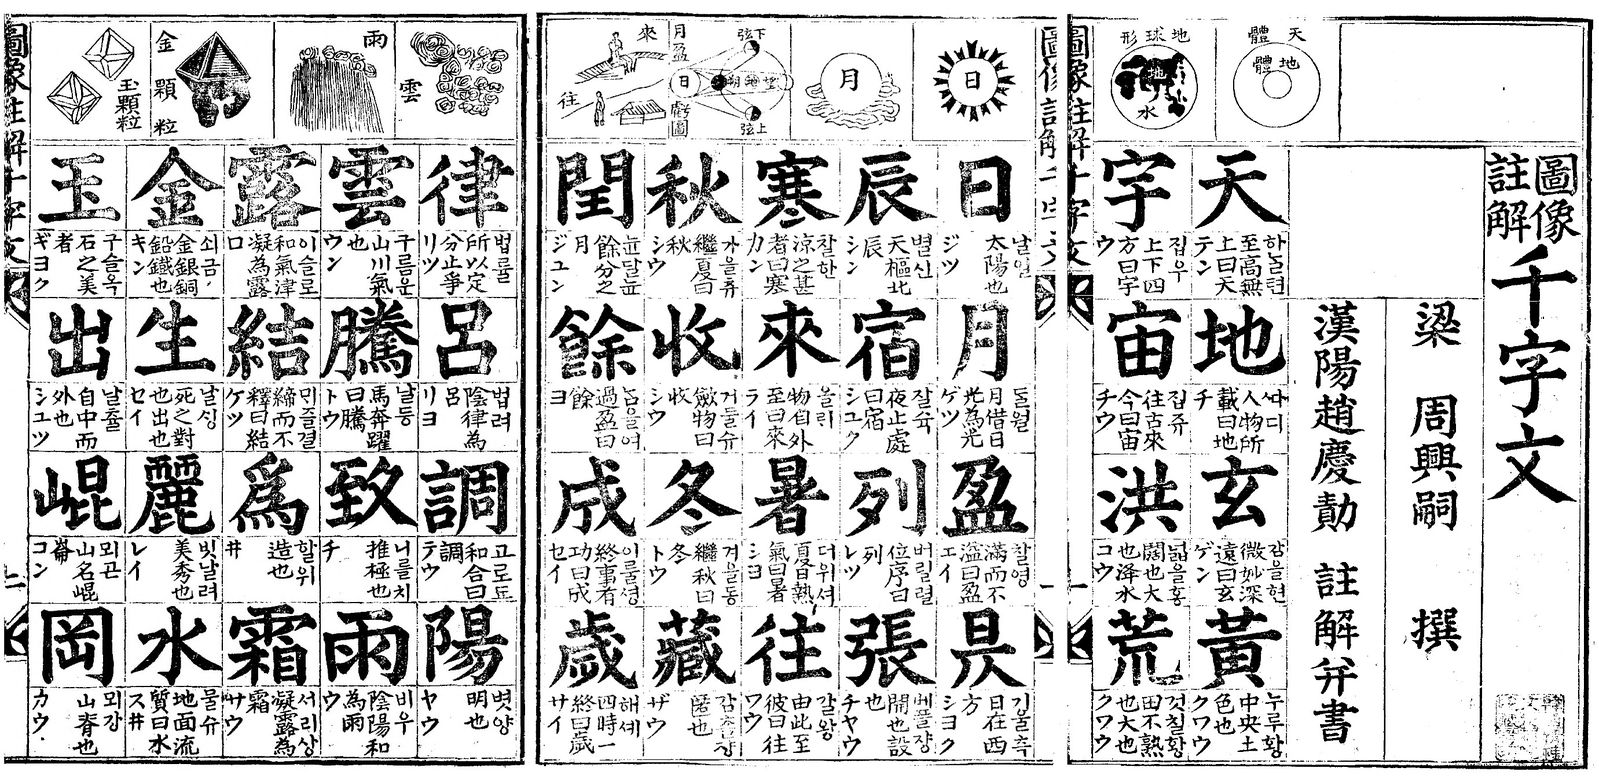 圖像
註解
千字文
梁 周興嗣 撰
漢陽趙慶勣 註解弁書
天體
地體
地球形
地
水
天
하날텬
至高無
上曰天
テン
地
人物所
載曰地
チ
玄
감을현
微妙深
遠曰玄
ゲン
黃
누루황
中央土
色也
クワウ
宇
집우
上下四
方曰宇
ウ
宙
집쥬
往古來
今曰宙
チウ
洪
넓을홍
闊也大
也洚水
コウ
荒
것칠황
田不熟
也大也
クワウ
圖像註解千字文
一
日
月
弦下
弦上
日
月盈
虧圖
來
往
日
날일
太陽也
ジツ
月
돌월
月借日
光為光
ゲツ
盈
찰영
滿而不
溢曰盈
エイ
昃
기울측
日在西
方
シヨク
辰
별신
天樞北
辰
シン
宿
잘슉
夜止處
曰宿
シユク
列
버릴렬
位序曰
列
レツ
張
베플쟝
開也設
也
チヤウ
寒
찰한
涼之甚
者曰寒
カン
來
올리
物自外
至曰來
ライ
暑
더위셔
夏日熱
氣曰暑
シヨ
往
갈왕
由此至
彼曰往
ワウ
秋
가을츄
繼夏曰
秋
シウ
收
거둘슈
斂物曰
收
シウ
冬
겨을동
繼秋曰
冬
トウ
藏
감츌장
匿也
ザウ
閏
윤달윤
餘分之
月
ジユン
餘
남을여
過盈曰
餘
ヨ
成
이룰셩
終事有
功曰成
セイ
歲
해셰
四時一
終曰歲
サイ
雲
雨
金顆粒
玉顆粒
律
법률률
所以定
分止爭
リツ
呂
법려
陰律為
呂
リヨ
調
고로됴
和合曰
調
テウ
陽
볏양
明也
ヤウ
雲
구름운
山川氣
也
ウン
騰
날등
馬奔躍
曰騰
トウ
致
니를치
推極也
チ
雨
비우
陰陽和
為雨
ウ
露
이슬로
和氣津
凝為露
ロ
結
미즐결
締而不
釋曰結
ケツ
爲
할위
造也
井
霜
서리상
凝露為
霜
サウ
金
쇠금
金銀銅
鉛鐵也
キン
生
날싱
死之對
也出也
セイ
麗
빗날려
美秀也
レイ
水
물슈
地面流
質曰水
ス井
玉
구슬옥
石之美
者
ギヨク
出
날츌
自中而
外也
シユツ
崐
뫼곤
山名崐
崙
コン
岡
뫼강
山脊也
カウ
圖像註解千字文
二